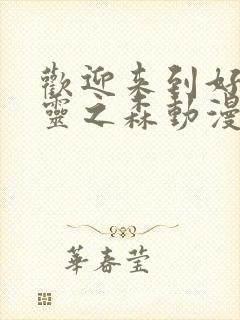 歡迎来到好
靈之森動漫
華春莹